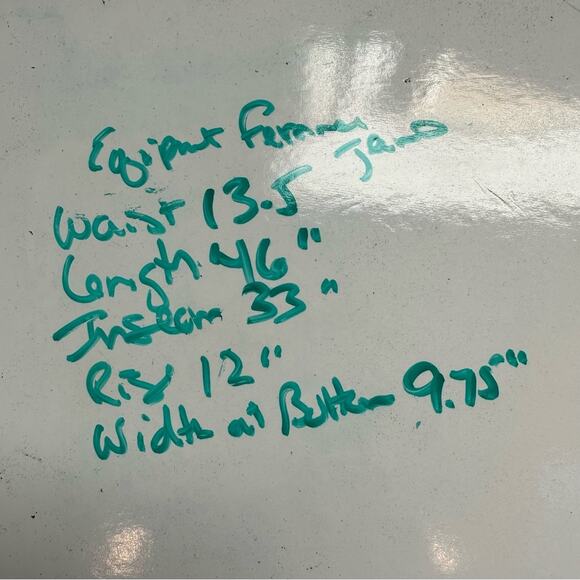 Equipment Femme Jeans
Waist 13.5
Length 46"
Inseam 33"
Rise 12"
Width at Bottom 9.75"